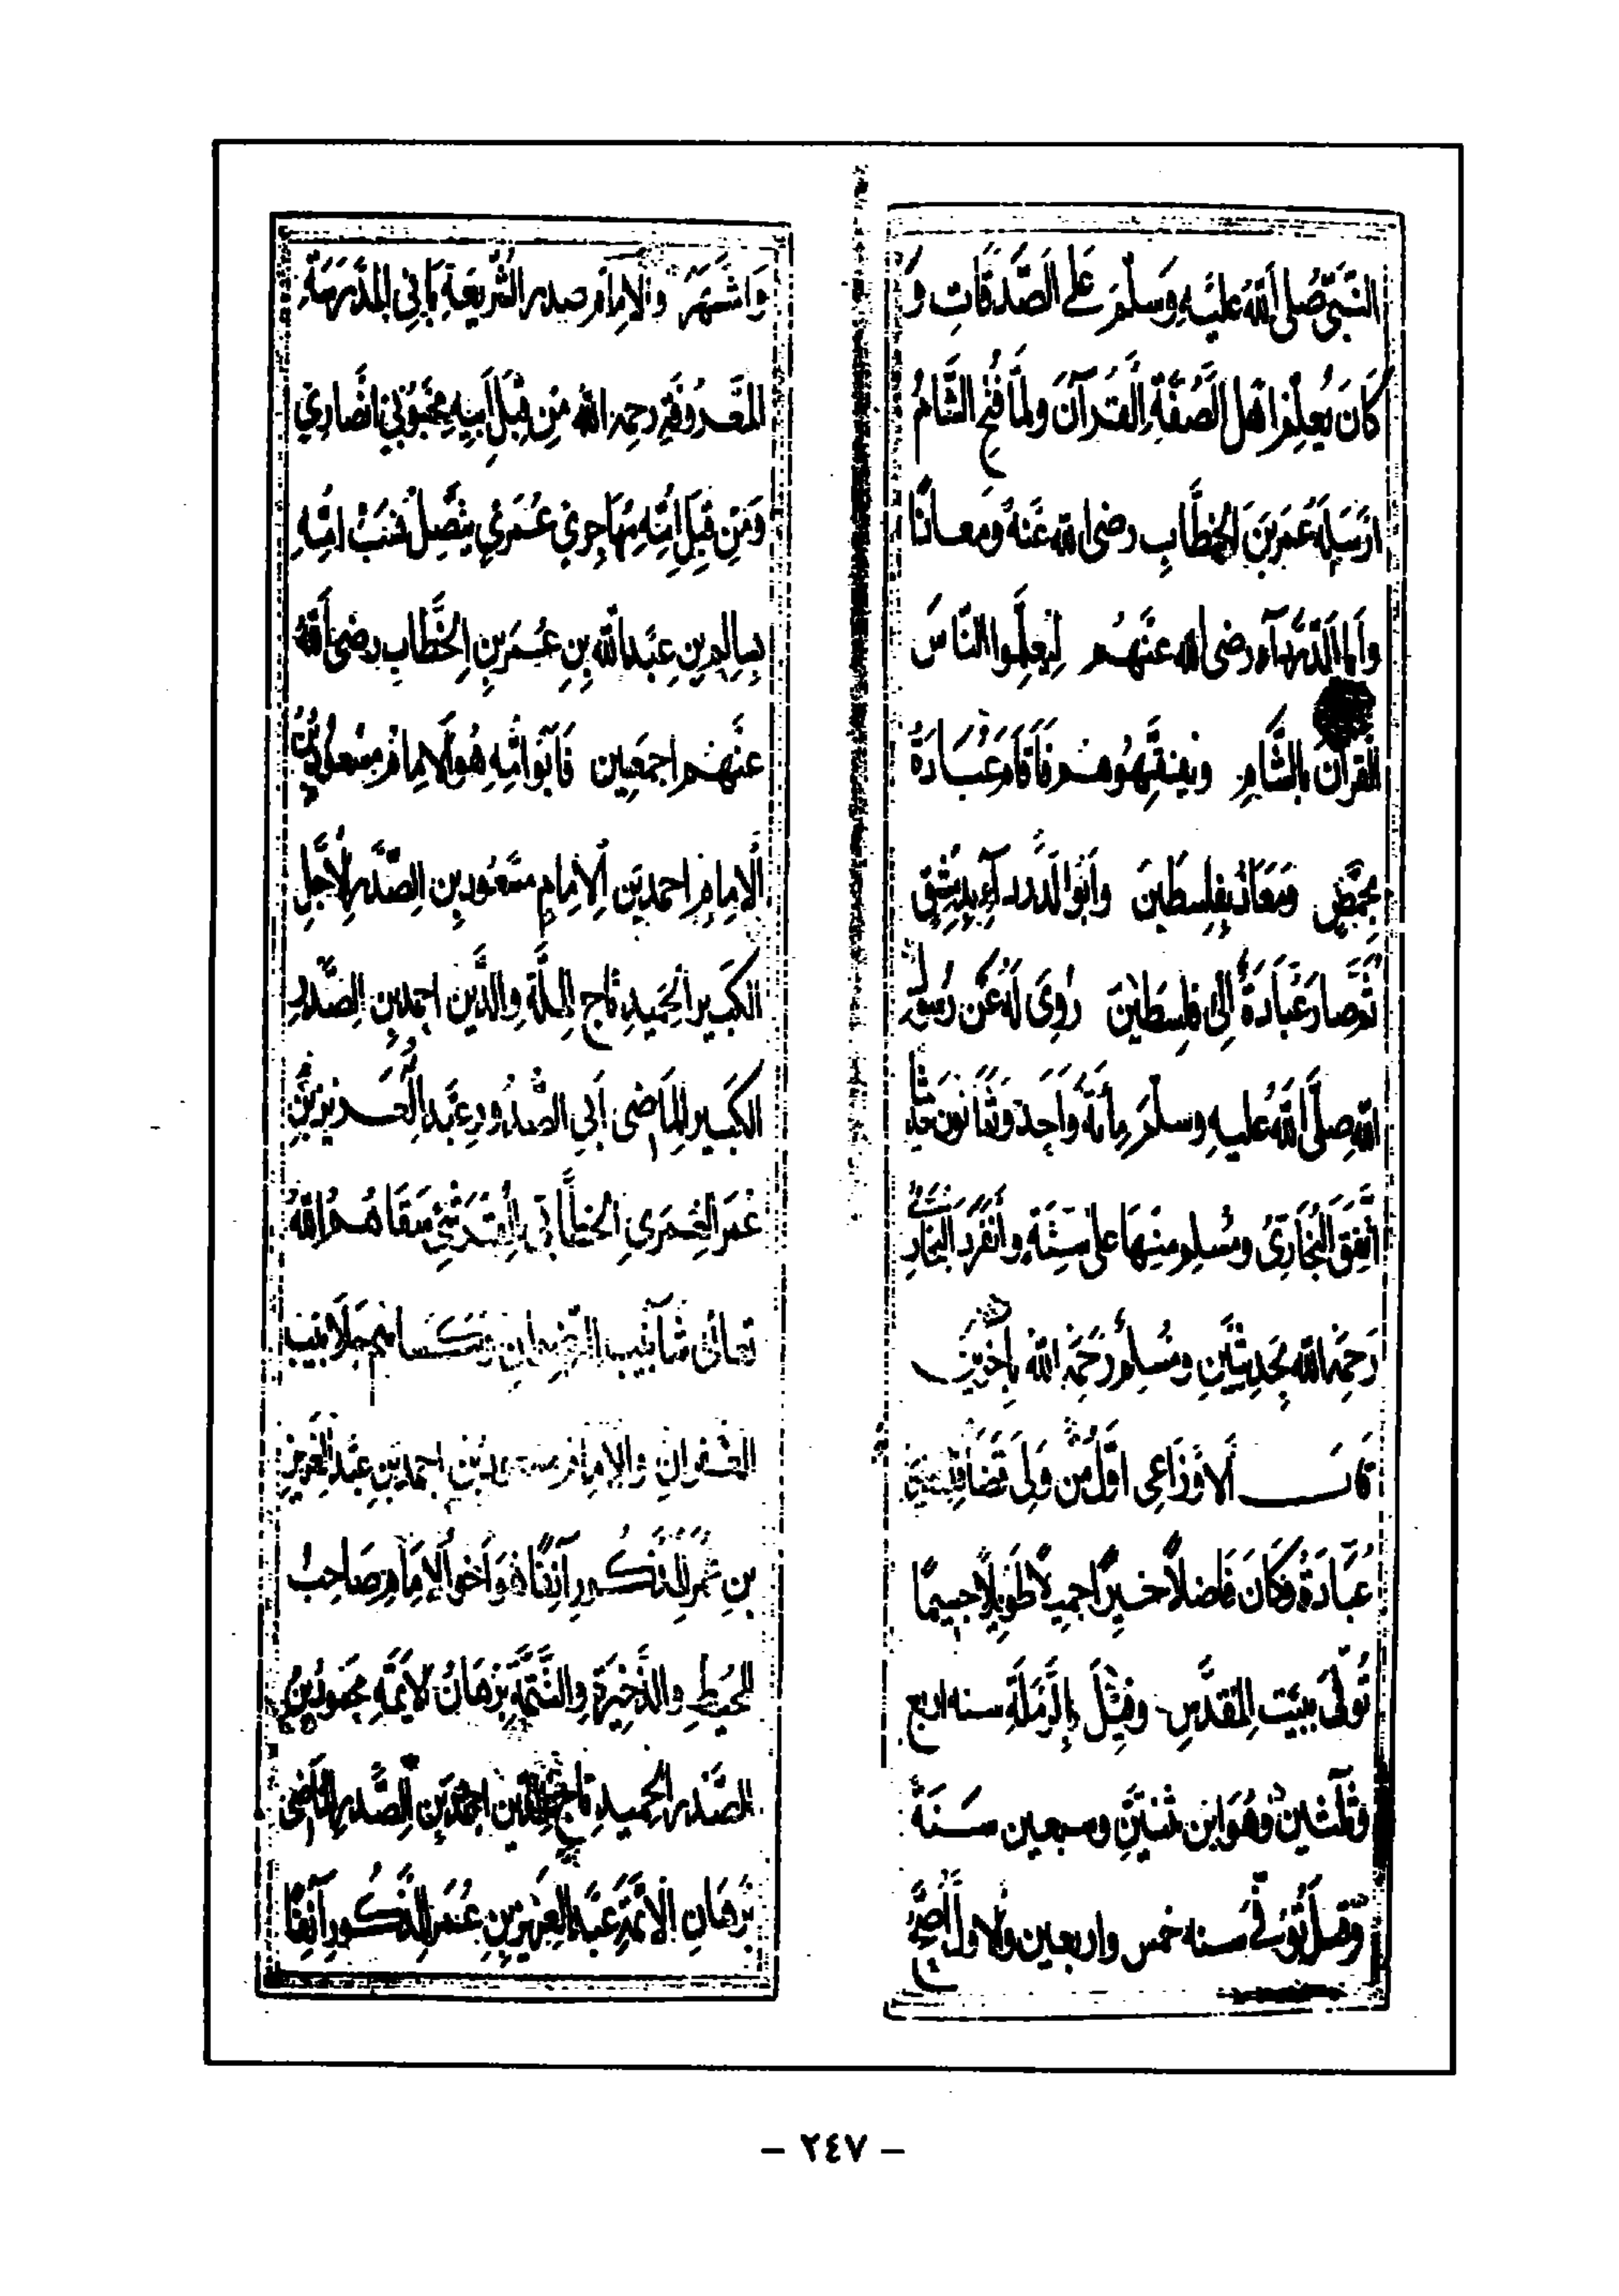 النَّبِيّ صَلى اللهُ عليَهِ وَسَلّم عَلى الصَّدَقَاتِ وَ
كَانَ يُعِلّم اهْل الصُّفَّةِ القُرآنَ وَلمَّا فُتِحَ الشَّامُ
ارْسَلَهُ عُمَر بنَ الخطَّابِ رضى الله عَنهُ وَمعَاذًا
وابا الدّرْدَآءِ رضى الله عنَهُم لِيُعِلّموا النّاسَ
القرآن بالشَّامِ ويفقِّهُوهُم فَاَقَامَ عُبَادَةُ
بحِمْصٍ ومَعَاذ بفِلسطَينَ وابَوُا الدَّرداءِ بدِمِشْقِ
ثُمَّ صَارَ عُبَادَةُ اِلىَ فلِسَطين رُوِىَ لَهُ عَن رَسُولِ
اللهِ صلَّى اللهُ عليهِ وسلمَ مِائَة وَاَحِدَ وَثَمَانُونَ حَدِيثًا
اتَّفَقَ الْبُخَارِىُّ ومُسْلِم منِهَا عَلى سِتَّةٍ وانفَرَدَ البُخَارِىُّ
رَحِمَهُ الله بحَدِيثَينِ ومُسِلمُ رَحِمَهُ اللهُ بآخَرَين
قَالَ الاوْزَاعِى اوّلُ مَن وَلِىَ قَضَا فلِسطين
عُبَادَةُ وَكَانَ فَاضلاً خَيّرًا جميلاً طَوِيلاً جسِيمًا
تُوُفّىَ ببَيَت المِقدَّسِ وقِيْلَ بالرَّمَلَةِ سنه اربع
وَثلثين وَهُوَ ابن ثنتَيْنِ وسبعين سَنَةً
وَقيل تُوُفِى سَنه خمس واربعين والاول اصَحّ
وَاشْتَهَرَ والامِام صدر الشَّريعَةِ بَانِى المدْرَسَةِ
المعَرُوفَةِ رحمه الله مِن قِبَل اَبيِهِ محَبُوبيّ انصَارِي
وَمِن قِبَل اُمِّهِ مُهَاجِريّ عُمَرِيّ يتَّصِلُ نسَبُ امِّهِ
بسِالِم بنِ عَبْدِ الله بنِ عُمَرِ بنِ الخَّطابِ رضِى اللهُ
عنَهُم اجمَعيِن فَاَبُو امِّهِ هُوَ الامَامُ مسَعُود بْنُ
الامِامِ احمد بنَ الامِام مسَعُود بن الصّدْر الاجَلِ
الكَبير الحَميدِ تاج المِلّة والدَّين احمد بن الصَّدرِ
الكَبير المَاضى اَبي الصُدُورِ عَبدِ الْعَزيز بْنِ
عُمَر العُمَرِي الخطابى القرشىّ سَقَاهُم اللهُ
تعالى شآبيب الرضوان وكساهم جلابيب
الغفران والامِامْ مسعود بن احمد بنِ عَبْد العَزيز
بن عُمَر المذكُور آنِفًا هُوَ اَخُو الامَام صَاحِبُ
المحُيطِ والذَّخيِرَةِ والتَّتِمَّةِ بُرهَانُ الايَمّةِ محَمُود بْنُ
الصَّدْر الحميدِ تاج الدّين احمَد بن الصَّدرِ المَاضِى
بُرهَانِ الائمّةِ عَبْدِ العَزيز بنِ عُمَر المذكُور آنِفًا
- ٢٤٧ -